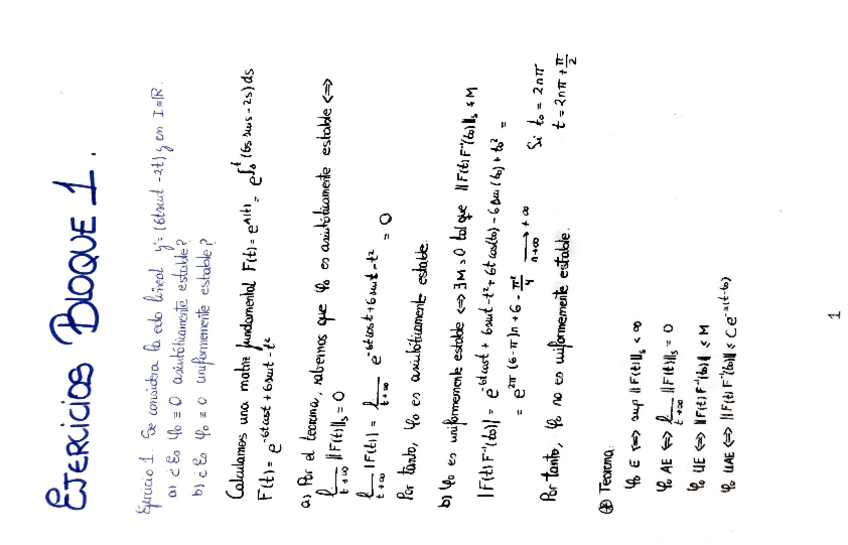 EJERCICIOS BLOQUE 1.
Ejercicio 1 Se considera la edo lineal y' = (6t sin t - 2t) y en I = ℝ.
a) ¿Es φ₀ ≡ 0 asintóticamente estable?
b) ¿Es φ₀ ≡ 0 uniformemente estable?
Calculamos una matriz fundamental F(t) = e^{A(t)} = e^{∫₀ᵗ (6s sin s - 2s) ds}
F(t) = e^{-6t cos t + 6 sin t - t²}
a) Por el teorema, sabemos que φ₀ es asintóticamente estable <=>
lim_{t→∞} ||F(t)||_s = 0
lim_{t→∞} |F(t)| = lim_{t→∞} e^{-6t cos t + 6 sin t - t²} = 0
Por tanto, φ₀ es asintóticamente estable.
b) φ₀ es uniformemente estable <=> ∃ M > 0 tal que ||F(t) F⁻¹(t₀)||_s ≤ M
|F(t) F⁻¹(t₀)| = e^{-6t cos t + 6 sin t - t² + 6t cos(t₀) - 6 sin(t₀) + t₀²} =
= e^{2π (6-π) n + 6 - π²/4} →_{n→∞} +∞
Si t₀ = 2nπ
t = 2nπ + π/2
Por tanto, φ₀ no es uniformemente estable.
⊛ Teorema:
φ₀ E <=> sup ||F(t)||_s < ∞
φ₀ AE <=> lim_{t→∞} ||F(t)||_s = 0
φ₀ UE <=> ||F(t) F⁻¹(t₀)|| ≤ M
φ₀ UAE <=> ||F(t) F⁻¹(t₀)|| ≤ C e^{-α(t-t₀)}
1